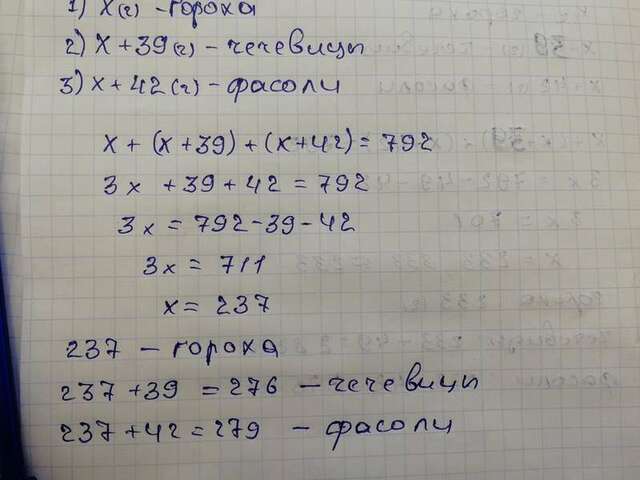 1) x(г) - гороха
2) x + 39(г) - чечевицы
3) x + 42(г) - фасоли
x + (x + 39) + (x + 42) = 792
3x + 39 + 42 = 792
3x = 792 - 39 - 42
3x = 711
x = 237
237 - гороха
237 + 39 = 276 - чечевицы
237 + 42 = 279 - фасоли